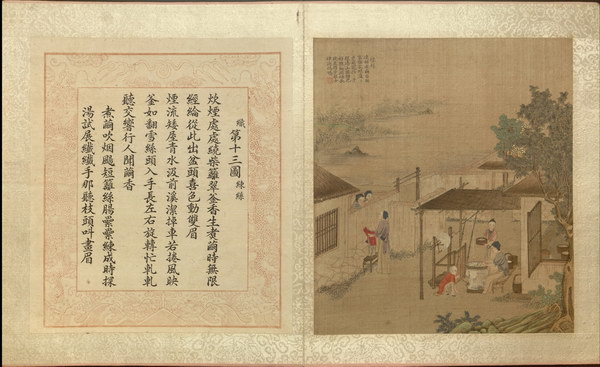 織第十三圖 練絲
炊煙處處繞柴籬翠釜香生煮繭時無限
經綸從此出盆頭喜色動雙眉
煙流矮屋青水汲前溪潔掉車若捲風映
釜如翻雪絲頭入手長左右旋轉忙軋軋
聽交響行人聞繭香
煮繭吹烟颺短籬絲腸縈縈練成時探
湯試展纖纖手那聽枝頭叫畫眉